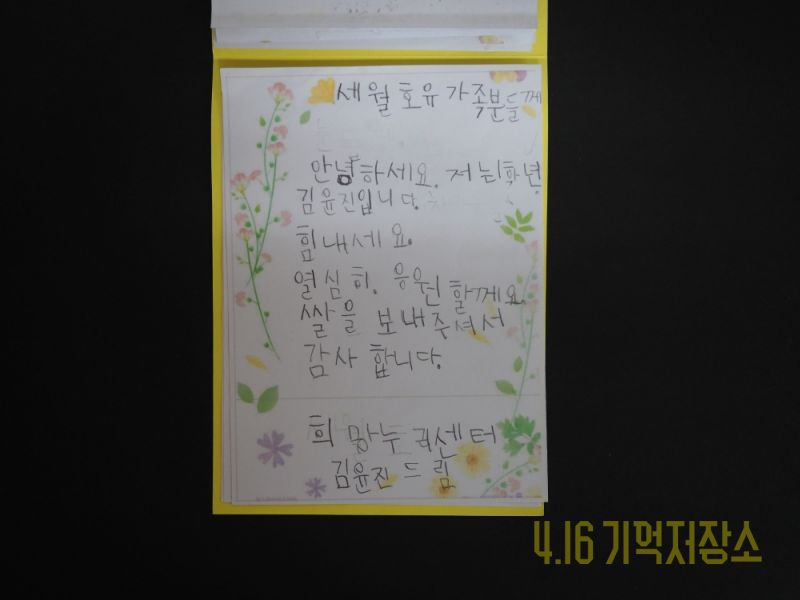 세월호유가족분들께
안녕하세요. 저는1학년
김윤진입니다.
힘내세요.
열심히. 응원할께요
쌀을 보내주셔서
감사 합니다.
희망누리센터
김윤진드림
4.16 기억저장소